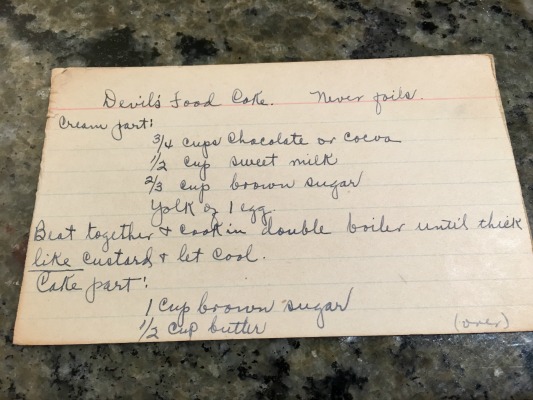 Devil's Food Cake. Never fails.
Cream part:
3/4 cups chocolate or cocoa
1/2 cup sweet milk
2/3 cup brown sugar
Yolk of 1 egg.
Beat together & cook in double boiler until thick
like custard & let cool.
Cake part:
1 cup brown sugar
1/2 cup butter
(over)